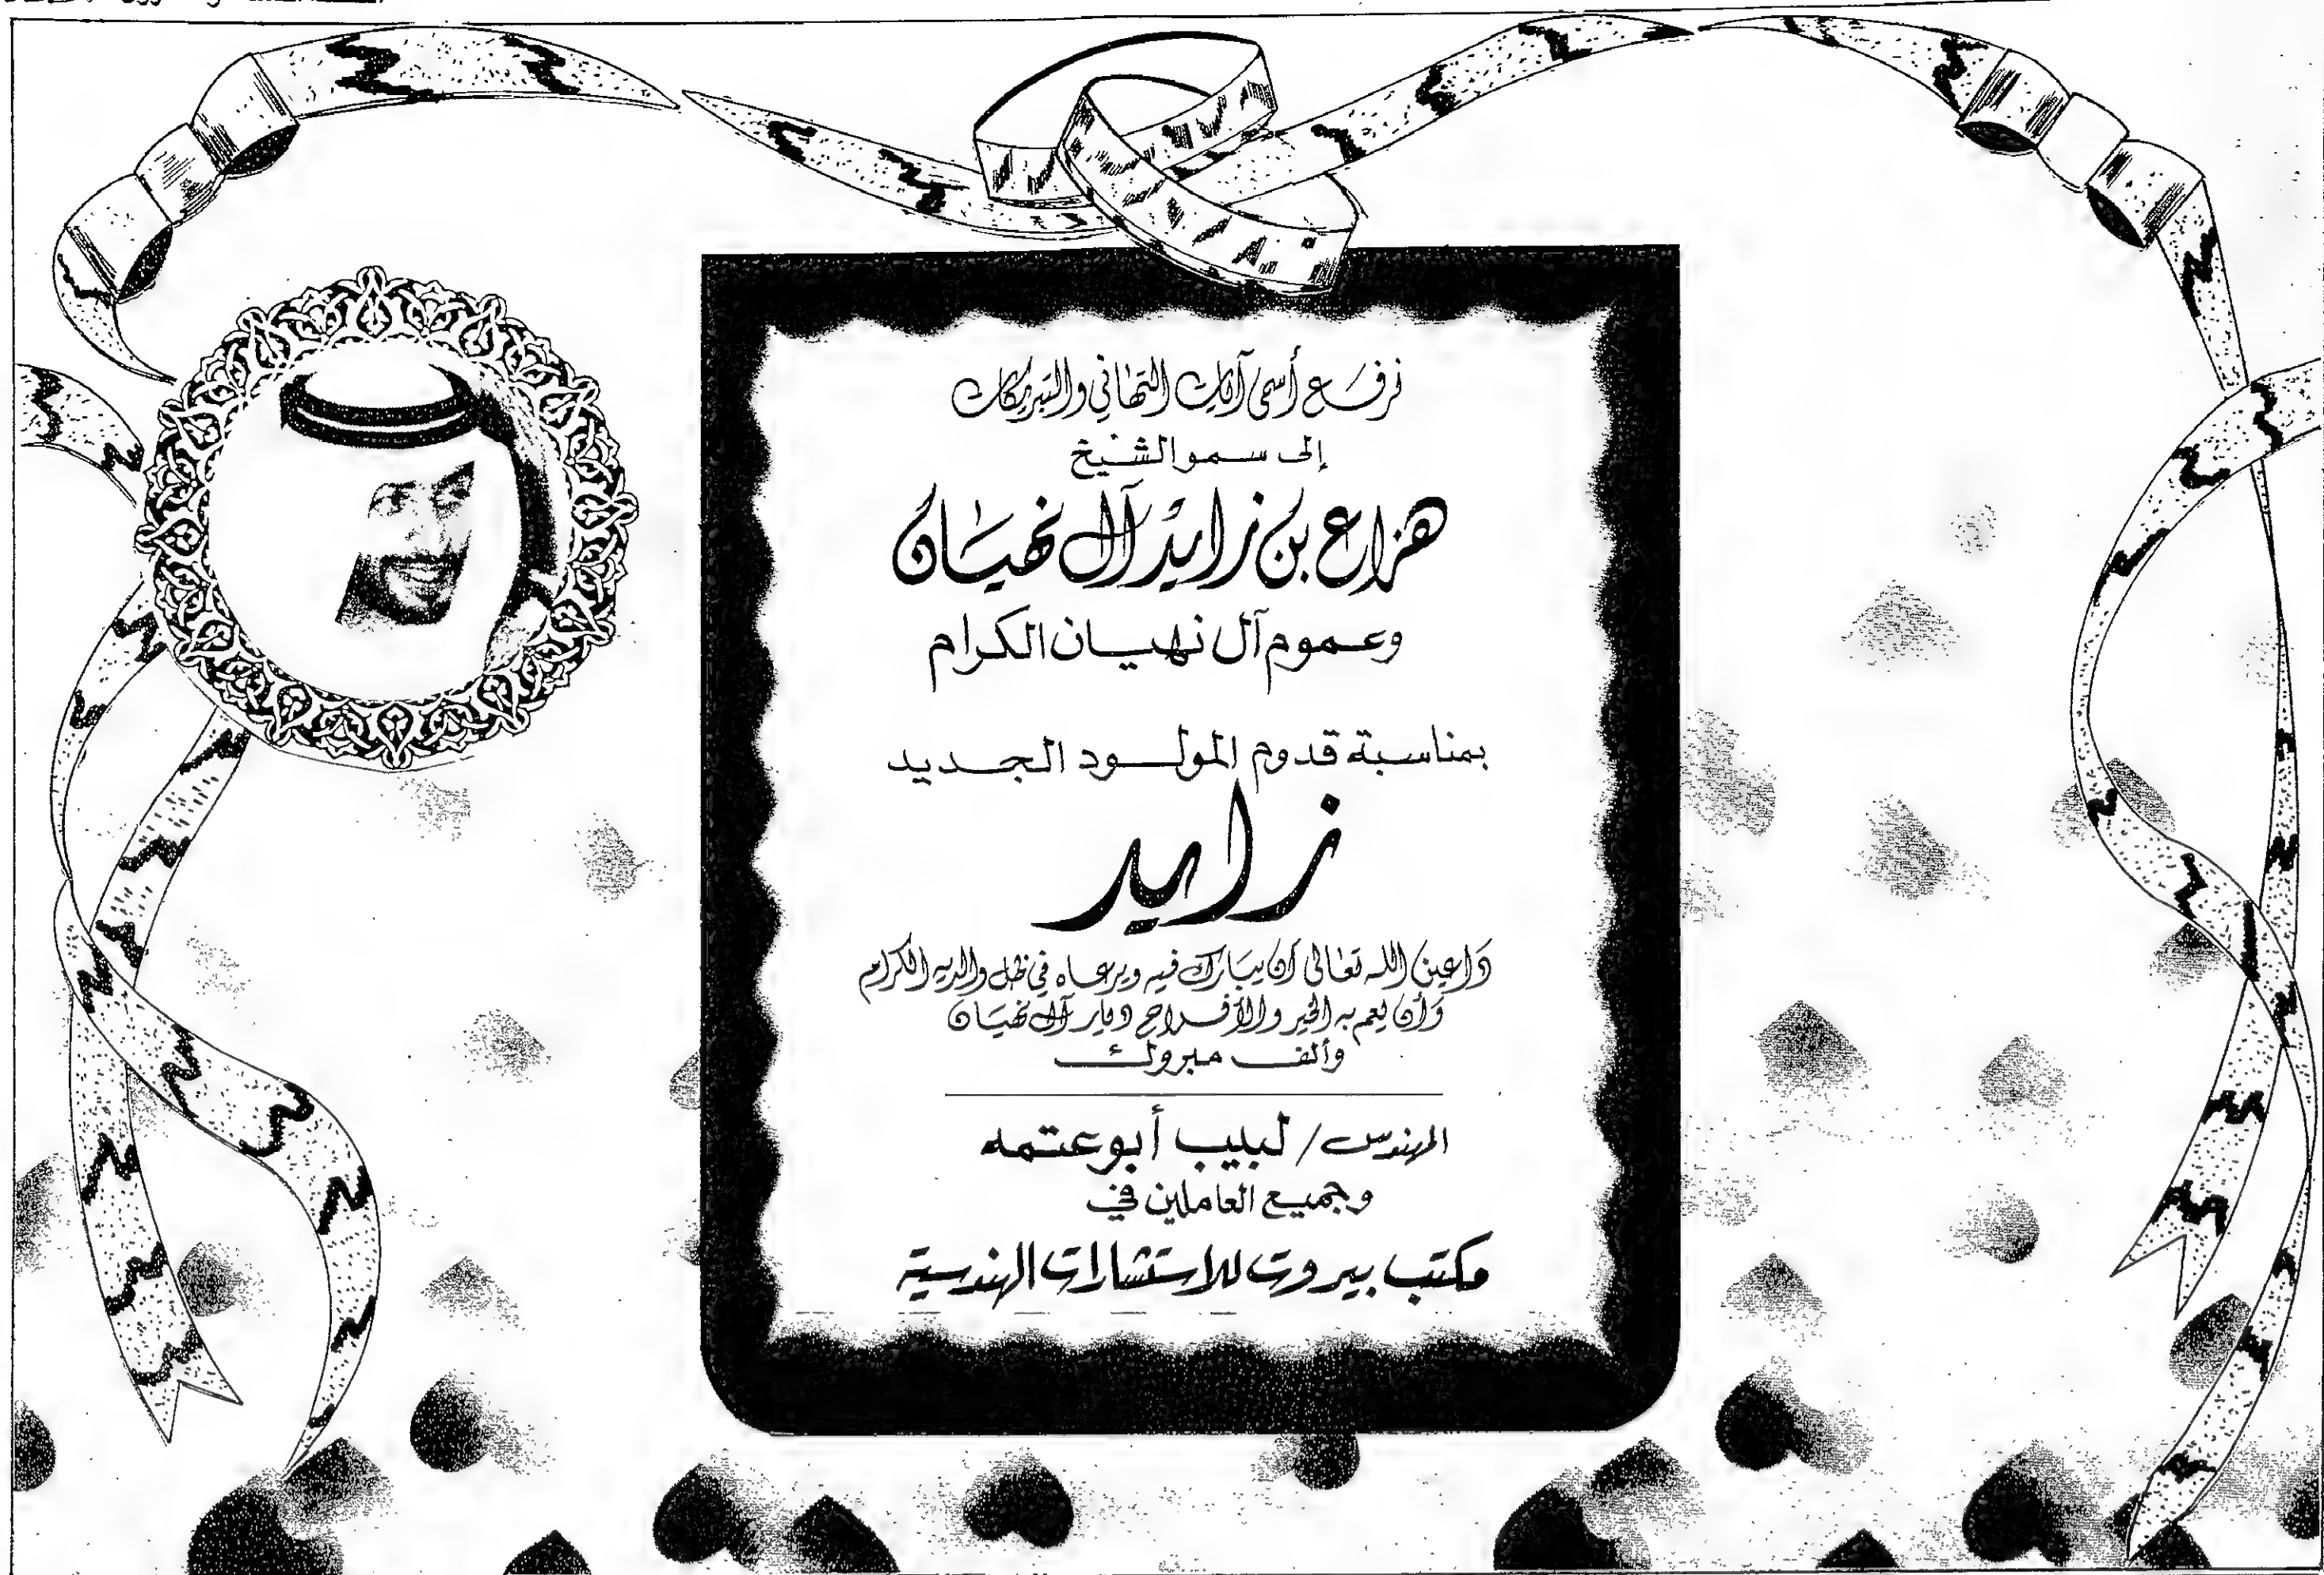 نرفع أسمى آيات التهاني والتبريكات
إلى سمو الشيخ
هزاع بن زايد آل نهيان
وعموم آل نهيان الكرام
بمناسبة قدوم المولود الجديد
زايد
داعين الله تعالى أن يبارك فيه ويرعاه في ظل والديه الكرام
وأن يعم به الخير والأفراح ديار آل نهيان
وألف مبروك
المهندس / لبيب أبو عتمه
وجميع العاملين في
مكتب بيروت للاستشارات الهندسية